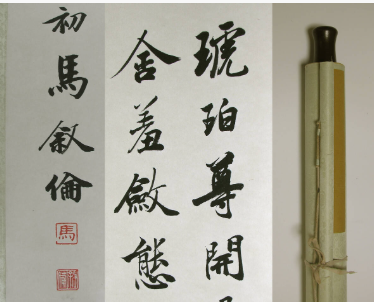 琥珀尊開
含羞斂態
初馬敘倫
馬